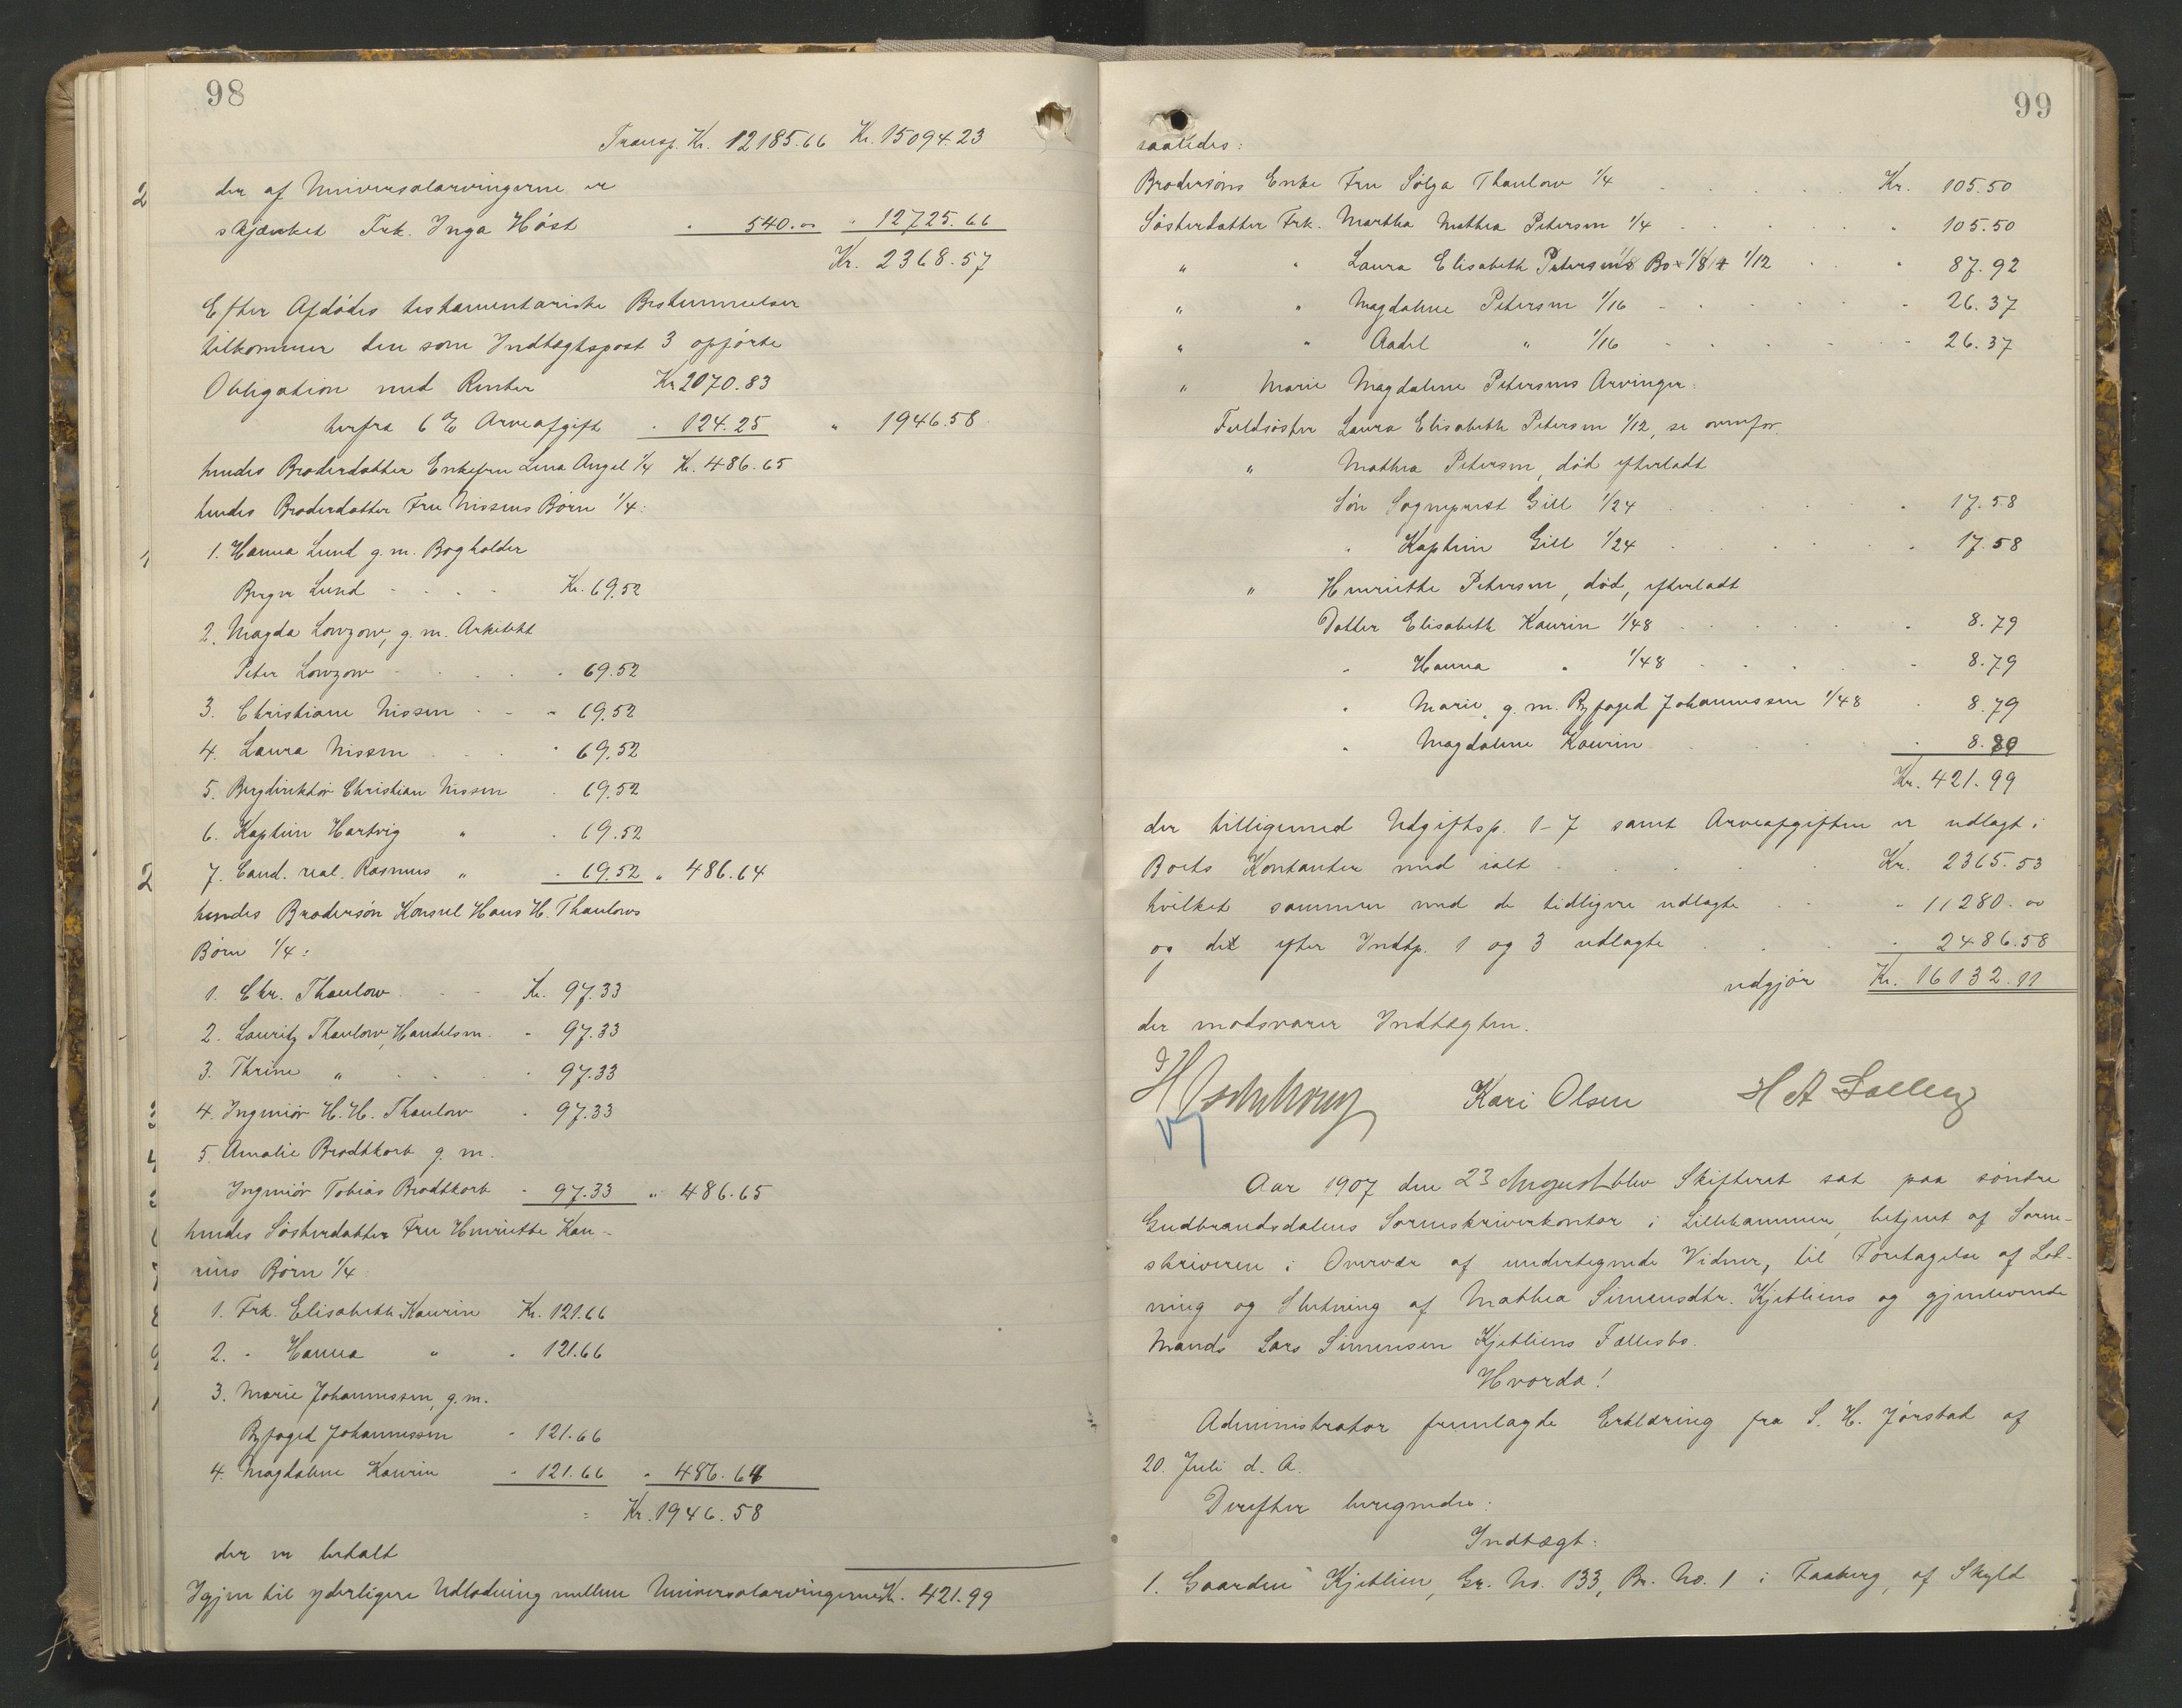 98
Transp. Kr. 12185.66 Kr. 15094.23
der af Universalarvingerne er
skjænket Frk. Inga Höst " 540.00 " 12725.66
Kr. 2368.57
Efter Afdödes testamentariske Bestemmelser
tilkommer den som Indtægtspost 3 opförte
Obligation med Renter Kr 2070.83
herfra 6 % Arveafgift " 124.25 " 1946.58
hendes Broderdatter Enkefru Lina Angel 1/4 Kr. 486.65
hendes Broderdatter Fru Nissens Börn 1/4:
1. Hanna Lund g. m. Bogholder
Birger Lund Kr. 69.52
2. Magda Lowzow, g. m. Arkitekt
Peter Lowzow " 69.52
3. Christiane Nissen " 69.52
4. Laura Nissen " 69.52
5. Bergdirektör Christian Nissen " 69.52
6. Kaptein Hartvig " " 69.52
7. Cand. real. Rasmus " " 69.52 " 486.64
hendes Brodersön Konsul Hans H. Thaulows
Börn 1/4:
1. Chr. Thaulow Kr. 97.33
2. Lauritz Thaulow, Handelsm. " 97.33
3. Thrine " " 97.33
4. Ingeniör H. H. Thaulow " 97.33
5. Amalie Brodtkorb g. m.
Ingeniör Tobias Brodtkorb " 97.33 " 486.65
hendes Sösterdatter Fru Henriette Kau-
rins Börn 1/4
1. Frk. Elisabeth Kaurin Kr. 121.66
2. " Hanna " " 121.66
3. Marie Johannessen, g. m.
Byfoged Johannessen " 121.66
4. Magdalene Kaurin " 121.66 " 486.64
= Kr. 1946.58
der er betalt
Igjen til yderligere Udlodning mellem Universalarvingerne Kr. 421.99
99
saaledes:
Brodersöns Enke Fru Sölga Thaulow 1/4 Kr. 105.50
Sösterdatter Frk. Martha Mathea Petersen 1/4 " 105.50
" " Laura Elisabeth Petersens Bo 1/8 + 1/12 " 87.92
" " Magdalene Petersen 1/16 " 26.37
" " Aadel " 1/16 " 26.37
" Marie Magdalene Petersens Arvinger:
Fuldsöster Laura Elisabeth Petersen 1/12, se ovenfor.
" Mathea Petersen, död efterladt
Sön Sogneprest Gill 1/24 " 17.58
" Kaptein Gill 1/24 " 17.58
" Henriette Petersen, död, efterladt
Datter Elisabeth Kaurin 1/48 " 8.79
" Hanna " 1/48 " 8.79
" Marie, g. m. Byfoged Johannessen 1/48 " 8.79
" Magdalene Kaurin " 8.80
Kr. 421.99
der tilligemed Udgiftsp. 1-7 samt Arveafgiften er udlagt i
Boets Kontanter med ialt Kr. 2365.53
hvilket sammen med de tidligere udlagte " 11280.00
og det efter Indtp. 1 og 3 udlagte " 2486.58
udgjör Kr. 16132.11
der modsvarer Indtægten.
Kari Olsen
Aar 1907 den 23 August blev Skifteret sat paa söndre
Gudbrandsdalens Sorenskriverkontor i Lillehammer, betjent af Soren-
skriveren i Overvær af undertegnede Vidner, til Foretagelse af Lod-
ning og Slutning af Mathea Simensdtr. Kjetliens og gjenlevende
Mands Lars Simensen Kjetliens Fællesbo.
Hvorda!
Administrator fremlagde Erklæring fra S. H. Jörstad af
20. Juli d. A.
Derefter beregnedes:
Indtægt:
1. Gaarden Kjetlien, Gr. No. 133, Br. No. 1 i Faaberg, af Skyld